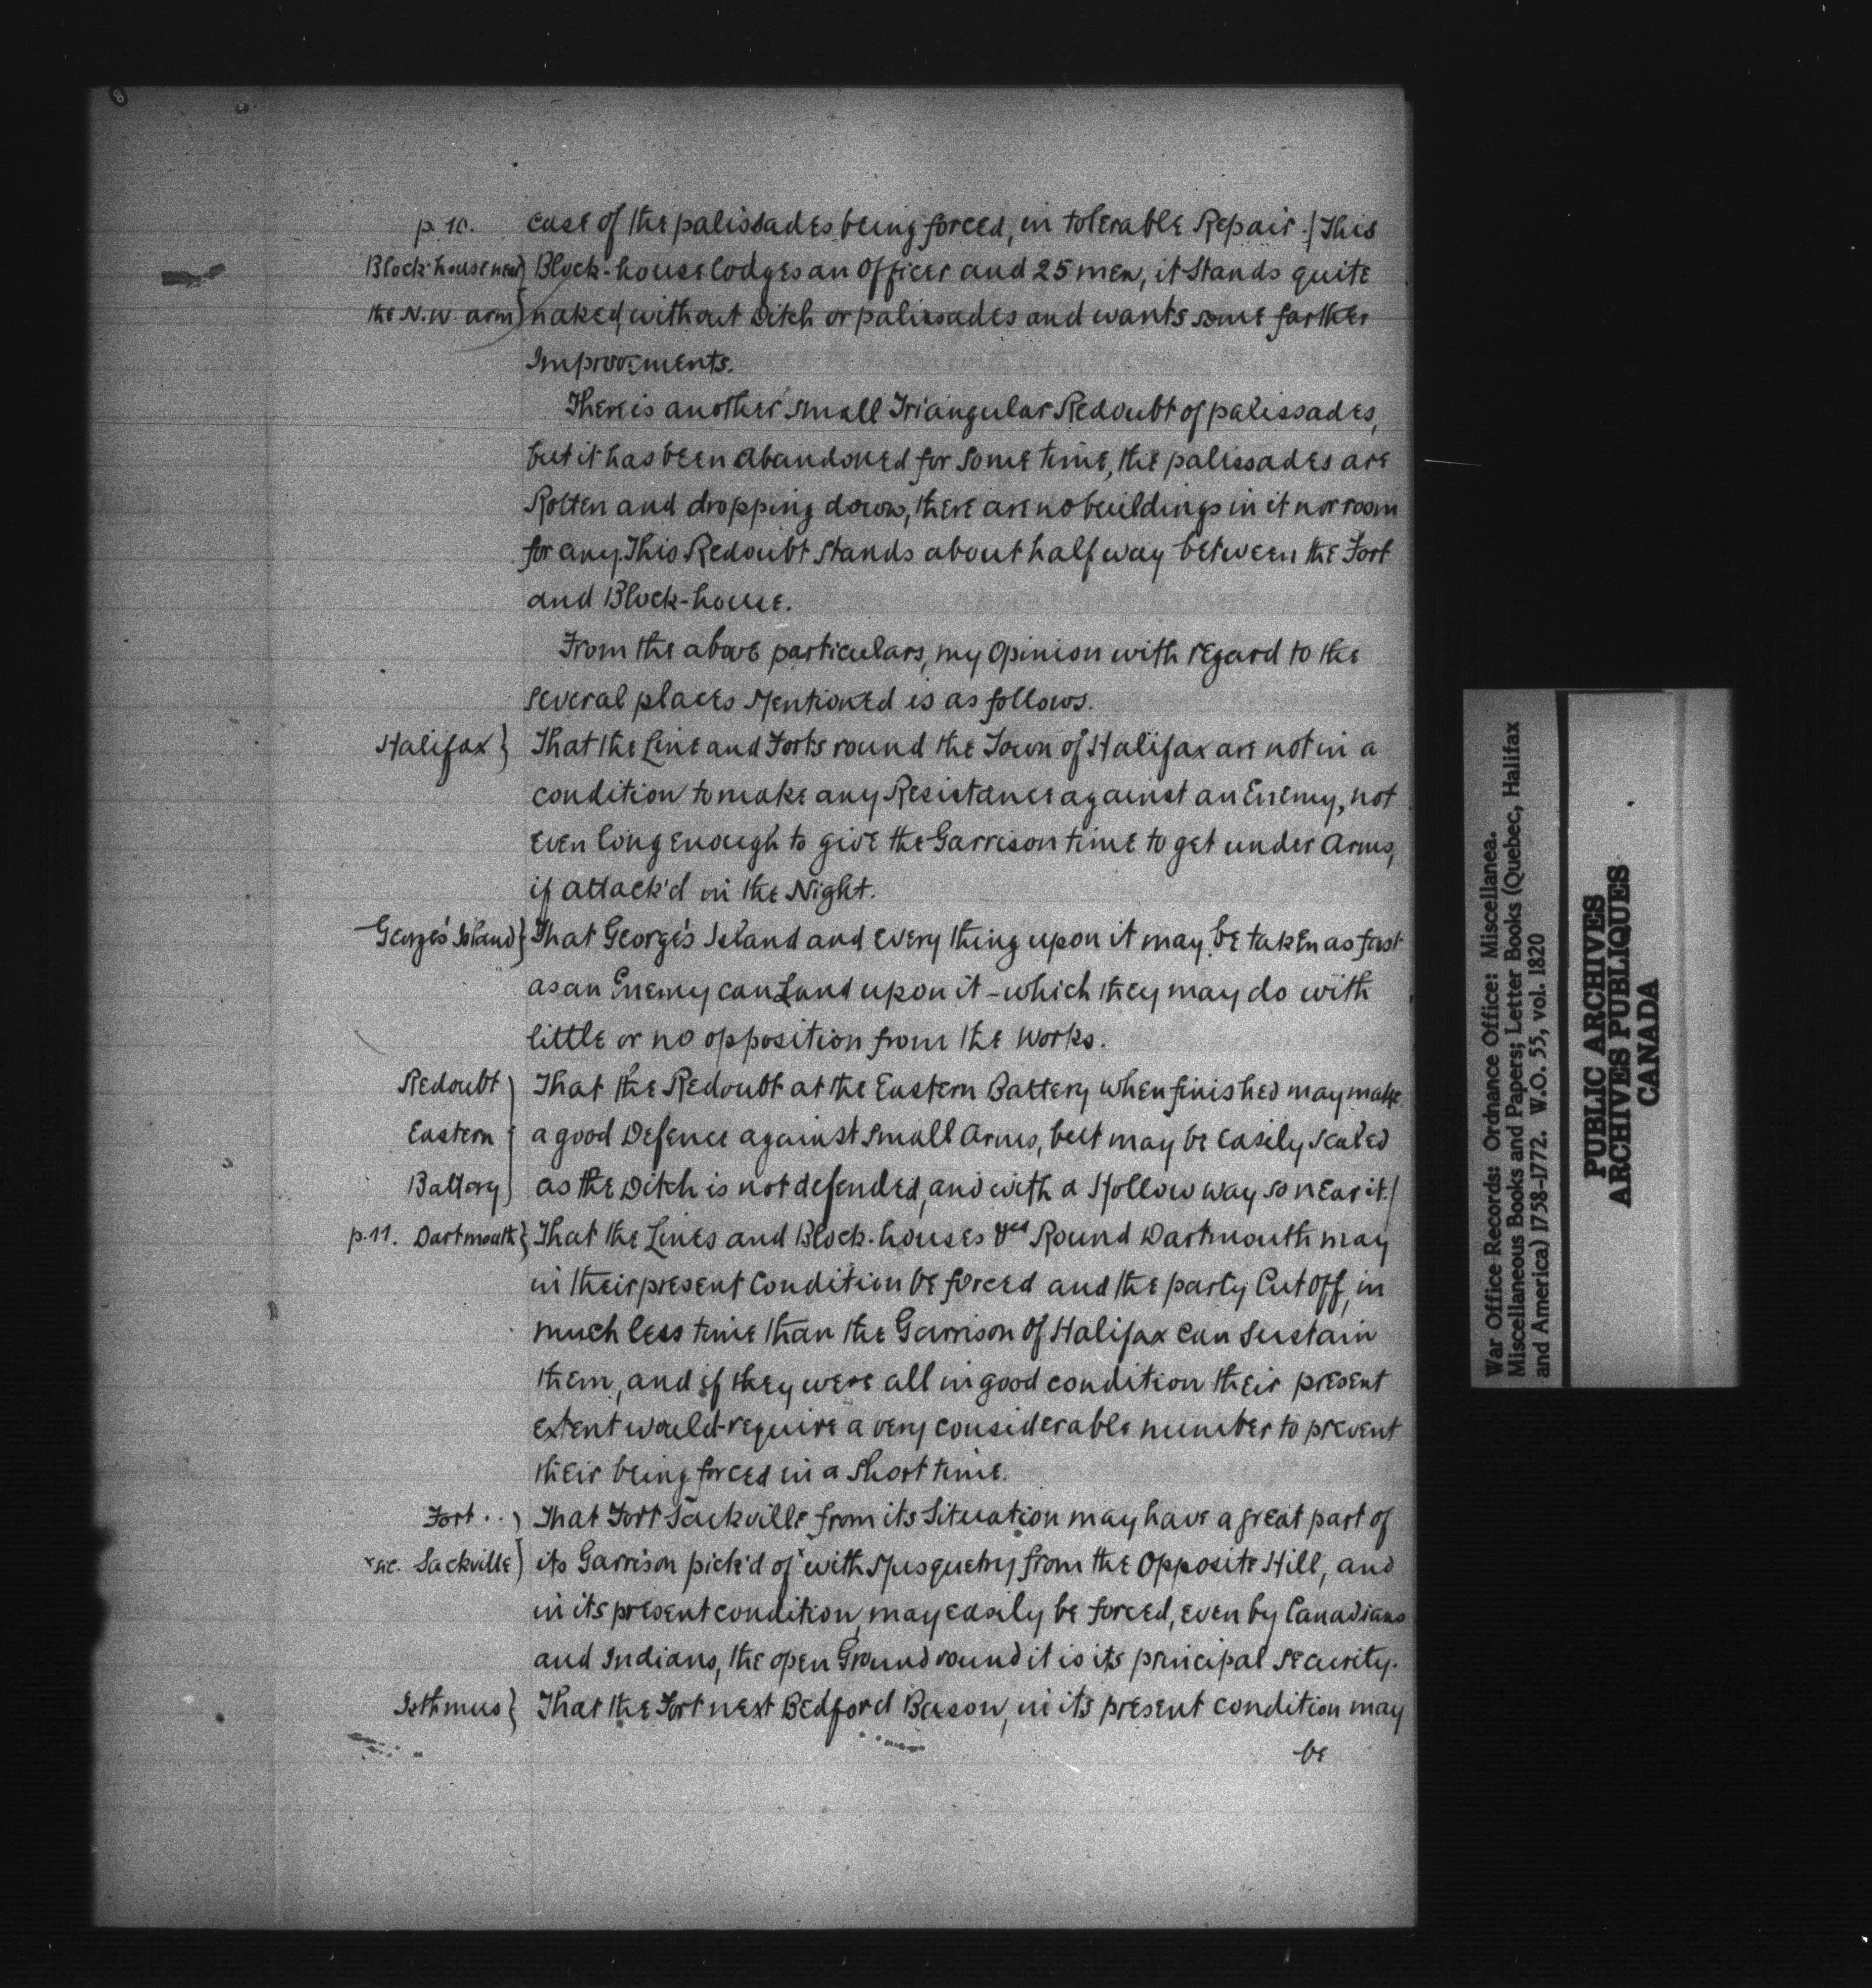 8
p. 10. case of the palissades being forced, in tolerable Repair./ This
Block-house near } Block-house lodges an Officer and 25 men, it Stands quite
the N.W. arm } naked, without Ditch or palissades and wants some farther
Improvements.
There is another small Triangular Redoubt of palissades,
but it has been abandoned for some time, the palissades are
Rotten and dropping down, there are no buildings in it nor room
for any. This Redoubt stands about half way between the Fort
and Block-house.
From the above particulars, my Opinion with regard to the
several places Mentioned is as follows.
Halifax } That the Line and Forts round the Town of Halifax are not in a
condition to make any Resistance against an Enemy, not
even long enough to give the Garrison time to get under Arms,
if attack'd in the Night.
George's Island } That George's Island and every thing upon it may be taken as fast
as an Enemy can Land upon it - which they may do with
little or no opposition from the Works.
Redoubt } That the Redoubt at the Eastern Battery when finished may make
Eastern } a good Defence against small Arms, but may be easily scaled
Battery } as the Ditch is not defended, and with a Hollow way so near it./
p. 11. Dartmouth } That the Lines and Block-houses Round Dartmouth may
in their present Condition be forced and the party Cut Off, in
much less time than the Garrison of Halifax can sustain
them, and if they were all in good condition their present
extent would require a very considerable number to prevent
their being forced in a short time.
Fort .. } That Fort Sackville from its Situation may have a great part of
Sackville } its Garrison pick'd of with Musquetry from the Opposite Hill, and
in its present condition, may easily be forced, even by Canadians
and Indians, the open Ground round it is its principal security.
Isthmus } That the Fort next Bedford Bason, in its present condition may
be
War Office Records: Ordnance Office: Miscellanea.
Miscellaneous Books and Papers; Letter Books (Quebec, Halifax
and America) 1758-1772. W.O. 55, vol. 1820
PUBLIC ARCHIVES
ARCHIVES PUBLIQUES
CANADA